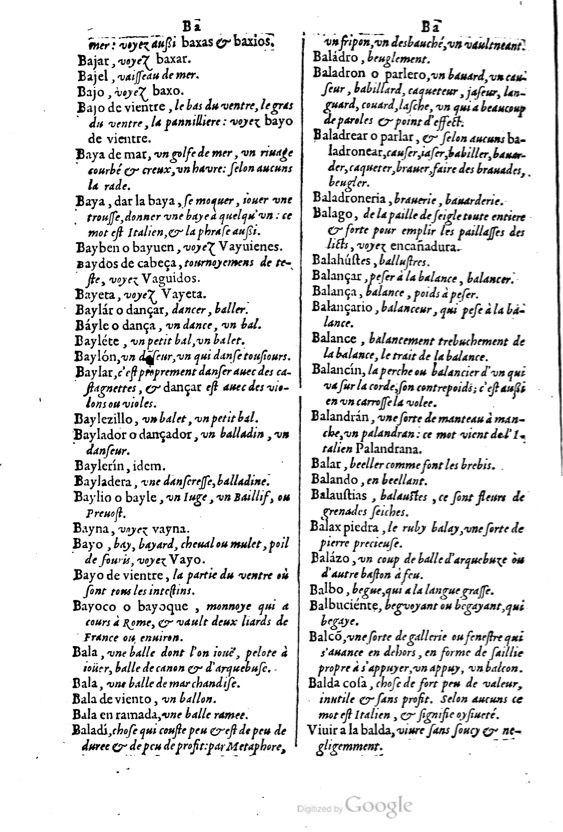 Bā
mer: voyez außi baxas & baxios.
Bajar, voyez baxar.
Bajel, vaisseau de mer.
Bajo, voyez baxo.
Bajo de vientre, le bas du ventre, le gras
du ventre, la pannilliere: voyez bayo
de vientre.
Baya de mar, vn golfe de mer, vn riuage
courbé & creux, vn havre: selon aucuns
la rade.
Baya, dar la baya, se moquer, iouer vne
trousse, donner vne baye à quelqu'vn: ce
mot est Italien, & la phrase außi.
Bayben o bayuen, voyez Vayuienes.
Baydos de cabeça, tournoyemens de te-
ste, voyez Vaguidos.
Bayeta, voyez Vayeta.
Baylár o dançar, dancer, baller.
Báyle o dança, vn dance, vn bal.
Bayléte, vn petit bal, vn balet.
Baylón, vn danseur, vn qui danse tousiours.
Baylar, c'est proprement danser auec des ca-
stagnettes, & dançar est auec des vio-
lons ou violes.
Baylezillo, vn balet, vn petit bal.
Baylador o dançador, vn balladin, vn
danseur.
Baylerín, idem.
Bayladera, vne danseresse, balladine.
Baylio o bayle, vn Iuge, vn Baillif, ou
Preuost.
Bayna, voyez vayna.
Bayo, bay, bayard, cheual ou mulet, poil
de souris, voyez Vayo.
Bayo de vientre, la partie du ventre où
sont tous les intestins.
Bayoco o bayoque, monnoye qui a
cours à Rome, & vault deux liards de
France ou enuiron.
Bala, vne balle dont l'on iouë, pelote à
ioüer, balle de canon & d'arquebuse.
Bala, vne balle de marchandise.
Bala de viento, vn ballon.
Bala en ramada, vne balle ramee.
Baladí, chose qui couste peu & est de peu de
duree & de peu de profit: par Metaphore,
Bā
vn fripon, vn desbauché, vn vaultneant.
Baládro, beuglement.
Baladron o parlero, vn bauard, vn cau-
seur, babillard, caqueteur, jaseur, lan-
guard, couard, lasche, vn qui a beaucoup
de paroles & point d'effect.
Baladrear o parlar, & selon aucuns ba-
ladronear, causer, jaser, babiller, bauar-
der, caqueter, brauer, faire des brauades,
beugler.
Baladroneria, brauerie, bauarderie.
Balago, de la paille de seigle toute entiere
& forte pour emplir les paillasses des
licts, voyez encañadura.
Balahústes, ballustres.
Balançar, peser à la balance, balancer.
Balança, balance, poids à peser.
Balançario, balanceur, qui pese à la ba-
lance.
Balance, balancement trebuchement de
la balance, le trait de la balance.
Balancín, la perche ou balancier d'vn qui
va sur la corde, son contrepoids; c'est außi
en vn carrosse la volee.
Balandrán, vne sorte de manteau à man-
che, vn palandran: ce mot vient de l'I-
talien Palandrana.
Balar, beeller comme font les brebis.
Balando, en beellant.
Balaustias, balaustes, ce sont fleurs de
grenades seiches.
Balax piedra, le ruby balay, vne sorte de
pierre precieuse.
Balázo, vn coup de balle d'arquebuze ou
d'autre baston à feu.
Balbo, begue, qui a la langue grasse.
Balbuciénte, begvoyant ou begayant, qui
begaye.
Balcō, vne sorte de gallerie ou fenestre qui
s'auance en dehors, en forme de saillie
propre à s'appuyer, vn appuy, vn balcon.
Balda cosa, chose de fort peu de valeur,
inutile & sans profit. Selon aucuns ce
mot est Italien, & signifie oysiueté.
Viuir a la balda, viure sans soucy & ne-
gligemment.
Digitized by Google